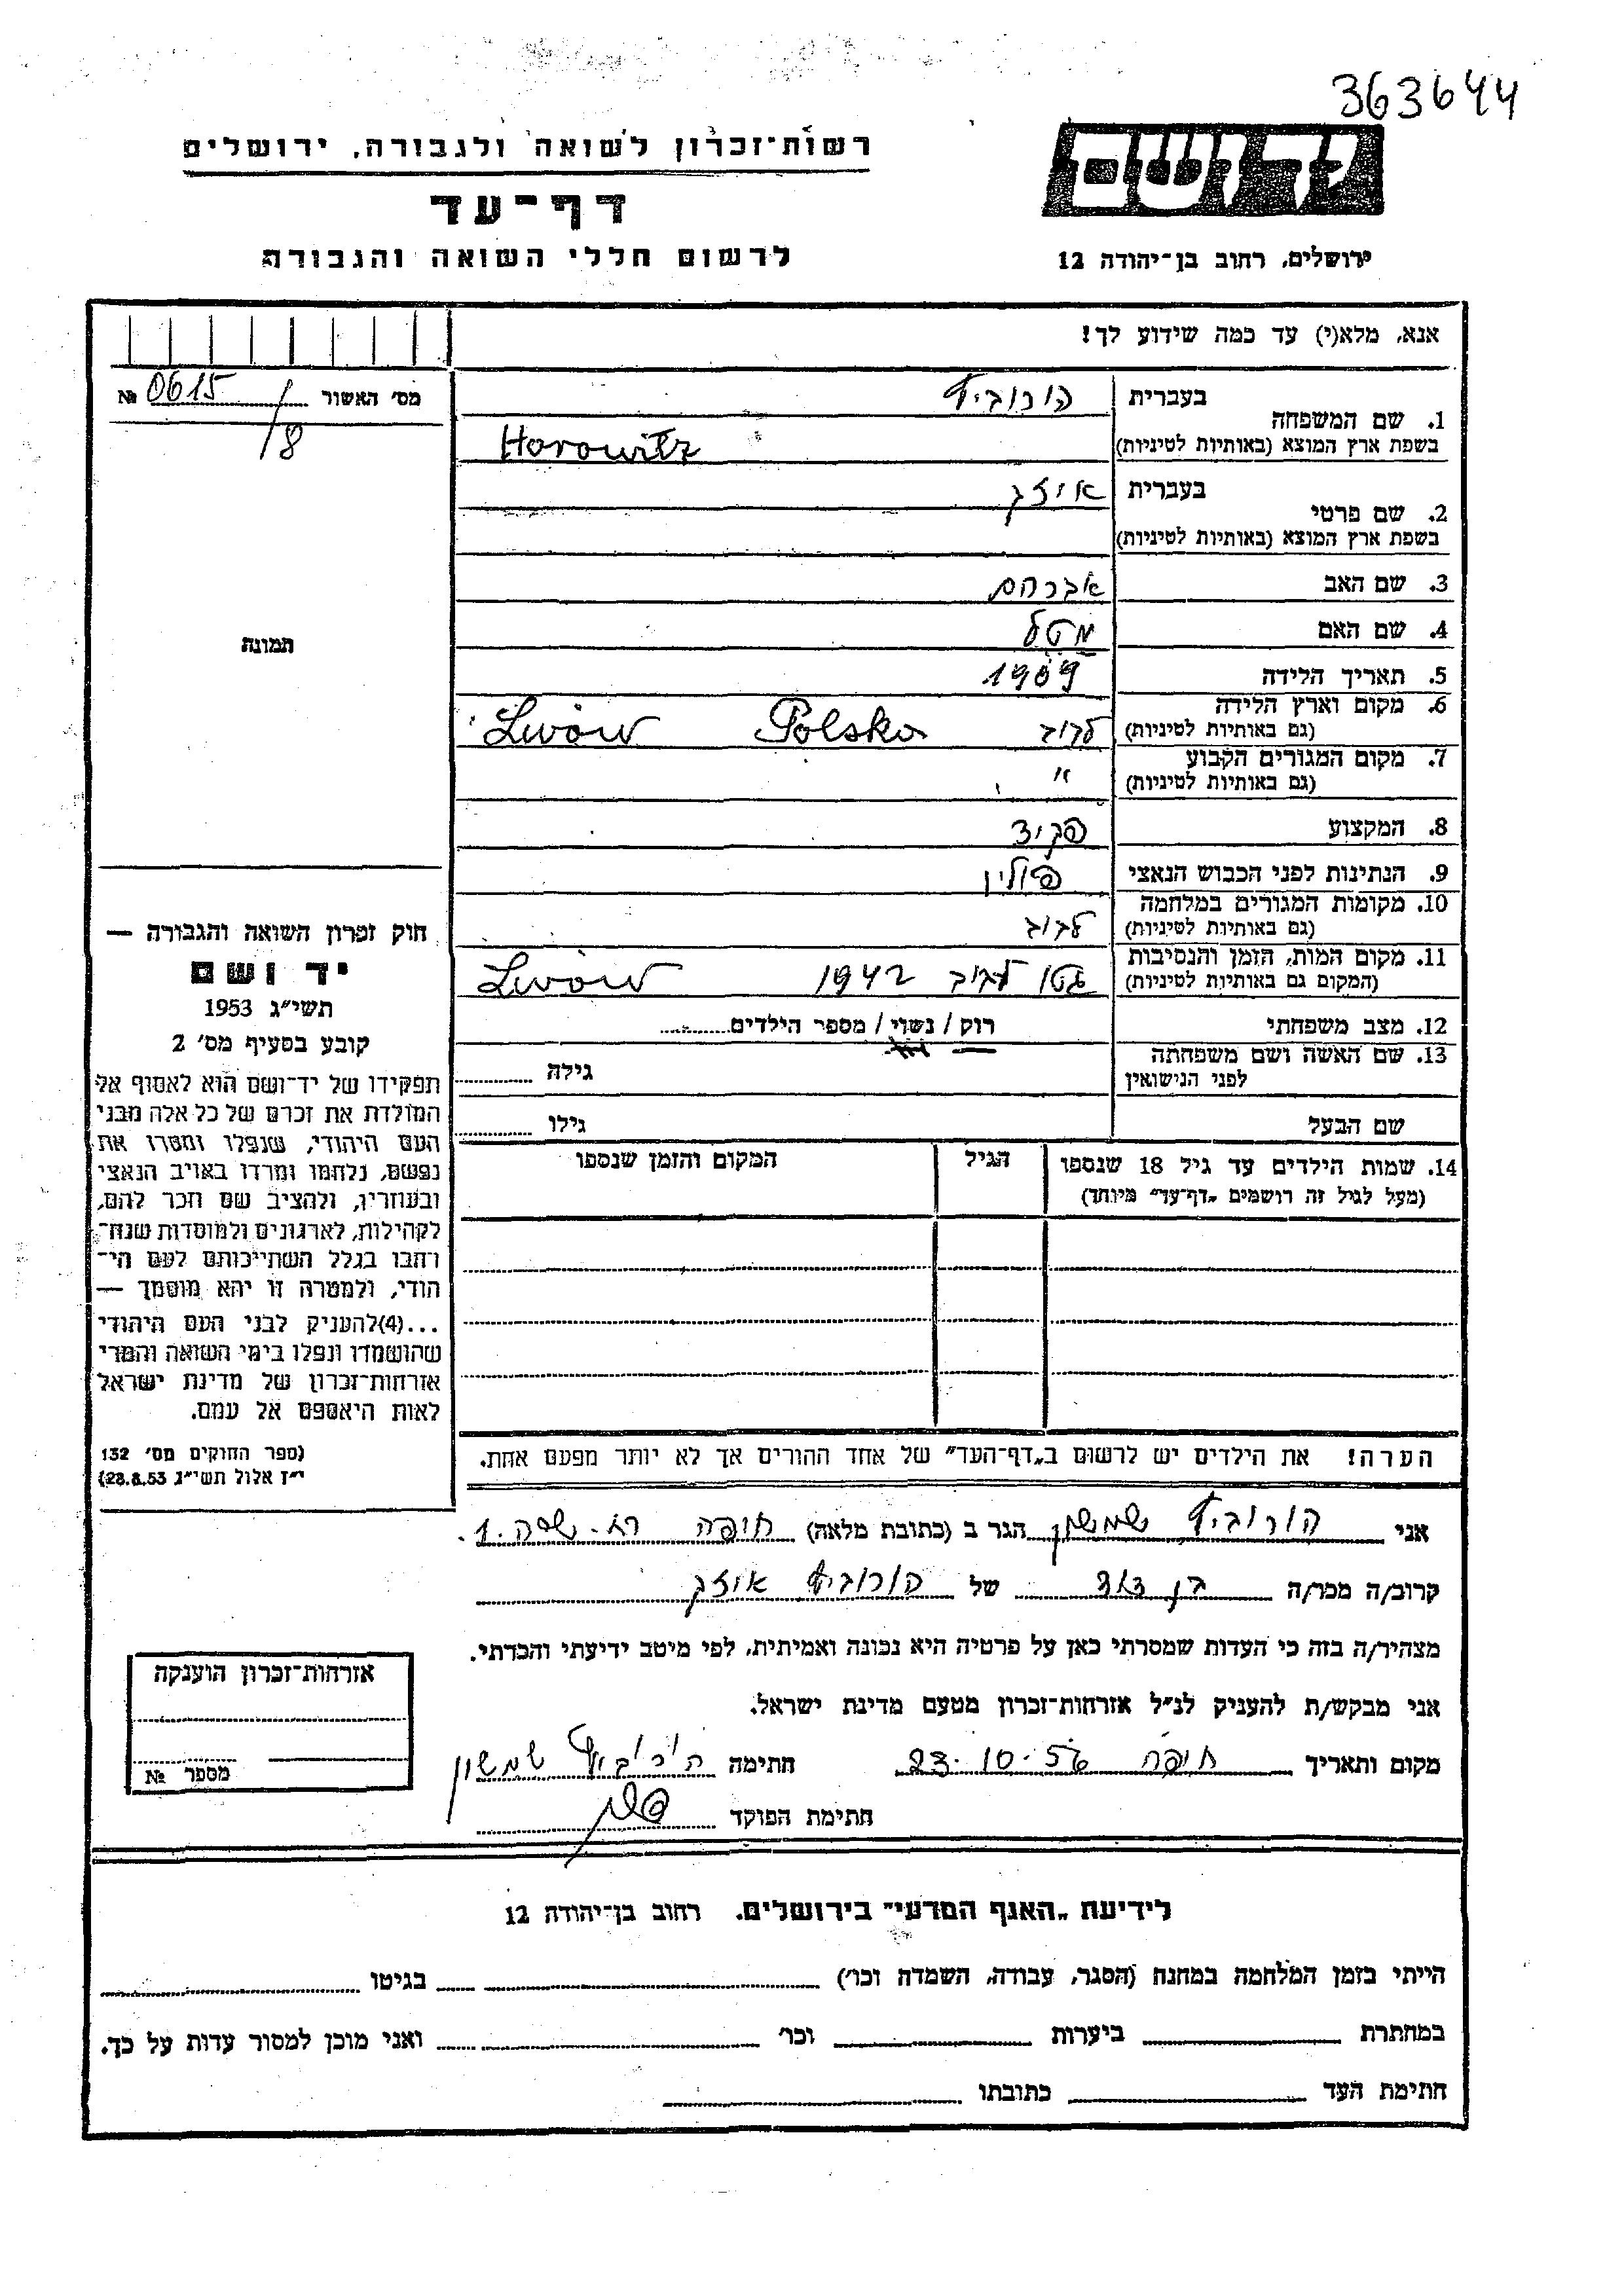 363644
יד ושם
רשות־זכרון לשואה ולגבורה, ירושלים
דף־עד
לרשום חללי השואה והגבורה
ירושלים, רחוב בן־יהודה 12
אנא, מלא(י) עד כמה שידוע לך!
מס׳ האשור № 0615/8
1. שם המשפחה בעברית הורוביץ
בשפת ארץ המוצא (באותיות לטיניות) Horowitz
2. שם פרטי בעברית איזק
בשפת ארץ המוצא (באותיות לטיניות)
3. שם האב אברהם
4. שם האם מטל
5. תאריך הלידה 1909
6. מקום וארץ הלידה לבוב Polska Lwów
(גם באותיות לטיניות)
7. מקום המגורים הקבוע "
(גם באותיות לטיניות)
8. המקצוע פקיד
9. הנתינות לפני הכבוש הנאצי פולין
10. מקומות המגורים במלחמה לבוב
(גם באותיות לטיניות)
11. מקום המות, הזמן והנסיבות גטו לבוב 1942 Lwów
(המקום גם באותיות לטיניות)
12. מצב משפחתי רוק / נשוי / מספר הילדים
13. שם האשה ושם משפחתה גילה
לפני הנישואין
שם הבעל גילו
14. שמות הילדים עד גיל 18 שנספו הגיל המקום והזמן שנספו
(מעל לגיל זה רושמים „דף־עד״ מיוחד)
הערה! את הילדים יש לרשום ב„דף־העד״ של אחד ההורים אך לא יותר מפעם אחת.
תמונה
חוק זכרון השואה והגבורה —
יד ושם
תשי״ג 1953
קובע בסעיף מס׳ 2
תפקידו של יד־ושם הוא לאסוף אל
המולדת את זכרם של כל אלה מבני
העם היהודי, שנפלו ומסרו את
נפשם, נלחמו ומרדו באויב הנאצי
ובעוזריו, ולהציב שם וזכר להם,
לקהילות, לארגונים ולמוסדות שנח־
רבו בגלל השתייכותם לעם הי־
הודי, ולמטרה זו יהא מוסמך —
...(4)להעניק לבני העם היהודי
שהושמדו ונפלו בימי השואה והמרי
אזרחות־זכרון של מדינת ישראל
לאות היאספם אל עמם.
(ספר החוקים מס׳ 132
י״ז אלול תשי״ג 28.8.53)
אני הורוביץ שמשון הגר ב (כתובת מלאה) חיפה רח.
קרוב/ה מכר/ה בן דוד של הורוביץ איזק
מצהיר/ה בזה כי העדות שמסרתי כאן על פרטיה היא נכונה ואמיתית, לפי מיטב ידיעתי והכרתי.
אני מבקש/ת להעניק לנ״ל אזרחות־זכרון מטעם מדינת ישראל.
מקום ותאריך חיפה 23.10.56 חתימה הורוביץ שמשון
חתימת הפוקד
אזרחות־זכרון הוענקה
מספר №
לידיעת „האגף המדעי״ בירושלים, רחוב בן־יהודה 12
הייתי בזמן המלחמה במחנה (הסגר, עבודה, השמדה וכו׳) בגיטו
במחתרת ביערות וכו׳ ואני מוכן למסור עדות על כך.
חתימת העד כתובתו